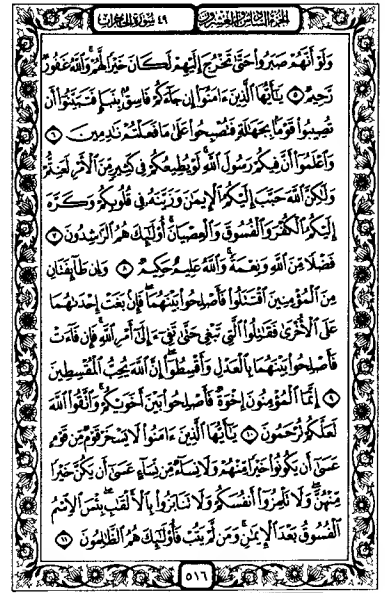 الجزء السادس والعشرون ٤٩ سورة الحجرات
وَلَوْ أَنَّهُمْ صَبَرُوا حَتَّىٰ تَخْرُجَ إِلَيْهِمْ لَكَانَ خَيْرًا لَّهُمْ ۚ وَاللَّهُ غَفُورٌ
رَّحِيمٌ ٥ يَا أَيُّهَا الَّذِينَ ءَامَنُوا إِن جَاءَكُمْ فَاسِقٌ بِنَبَإٍ فَتَبَيَّنُوا أَن
تُصِيبُوا قَوْمًا بِجَهَالَةٍ فَتُصْبِحُوا عَلَىٰ مَا فَعَلْتُمْ نَادِمِينَ ٦
وَاعْلَمُوا أَنَّ فِيكُمْ رَسُولَ اللَّهِ ۚ لَوْ يُطِيعُكُمْ فِي كَثِيرٍ مِّنَ الْأَمْرِ لَعَنِتُّمْ
وَلَٰكِنَّ اللَّهَ حَبَّبَ إِلَيْكُمُ الْإِيمَانَ وَزَيَّنَهُ فِي قُلُوبِكُمْ وَكَرَّهَ
إِلَيْكُمُ الْكُفْرَ وَالْفُسُوقَ وَالْعِصْيَانَ ۚ أُولَٰئِكَ هُمُ الرَّاشِدُونَ ٧
فَضْلًا مِّنَ اللَّهِ وَنِعْمَةً ۚ وَاللَّهُ عَلِيمٌ حَكِيمٌ ٨ وَإِن طَائِفَتَانِ
مِنَ الْمُؤْمِنِينَ اقْتَتَلُوا فَأَصْلِحُوا بَيْنَهُمَا ۖ فَإِن بَغَتْ إِحْدَاهُمَا
عَلَى الْأُخْرَىٰ فَقَاتِلُوا الَّتِي تَبْغِي حَتَّىٰ تَفِيءَ إِلَىٰ أَمْرِ اللَّهِ ۚ فَإِن فَاءَتْ
فَأَصْلِحُوا بَيْنَهُمَا بِالْعَدْلِ وَأَقْسِطُوا ۖ إِنَّ اللَّهَ يُحِبُّ الْمُقْسِطِينَ
٩ إِنَّمَا الْمُؤْمِنُونَ إِخْوَةٌ فَأَصْلِحُوا بَيْنَ أَخَوَيْكُمْ ۚ وَاتَّقُوا اللَّهَ
لَعَلَّكُمْ تُرْحَمُونَ ١٠ يَا أَيُّهَا الَّذِينَ ءَامَنُوا لَا يَسْخَرْ قَوْمٌ مِّن قَوْمٍ
عَسَىٰ أَن يَكُونُوا خَيْرًا مِّنْهُمْ وَلَا نِسَاءٌ مِّن نِّسَاءٍ عَسَىٰ أَن يَكُنَّ خَيْرًا
مِّنْهُنَّ ۖ وَلَا تَلْمِزُوا أَنفُسَكُمْ وَلَا تَنَابَزُوا بِالْأَلْقَابِ ۖ بِئْسَ الِاسْمُ
الْفُسُوقُ بَعْدَ الْإِيمَانِ ۚ وَمَن لَّمْ يَتُبْ فَأُولَٰئِكَ هُمُ الظَّالِمُونَ ١١
٥١٦